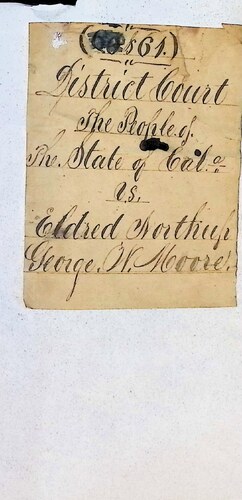 61.)
District Court
The People of.
The State of Cal.a
vs.
Eldred Northup
George. W. Moore.